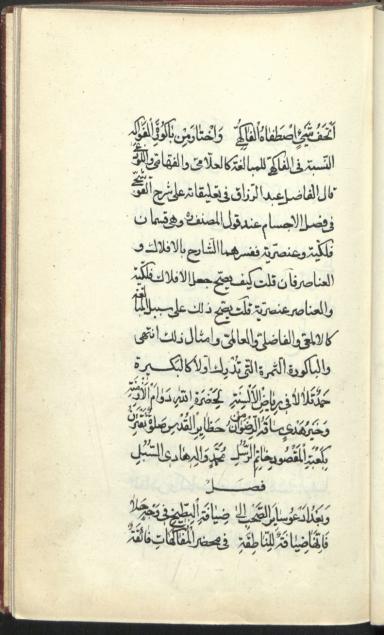 اتحف شيء اصطفاه الفاكهي واختار من باكورة الفواكه
النسبة في الفاكهي للمبالغة كالعلامي والفهامي واللوذعي
قال الفاضل عبد الرزاق في تعليقاته على شرح القوشجي
في فصل الاجسام عند قول المصنف وهي قسمان
فلكية وعنصرية ففسرهما الشارح بالافلاك و
العناصر فان قلت كيف يصح جعل الافلاك فلكية
والعناصر عنصرية قلت يصح ذلك على سبيل المبالغة
كالالمعي والفاضلي والعالمي وامثال ذلك انتهى
والباكورة الثمرة التي تدرك اولا كالبكيرة
حمد تلالأ في رياض الالسنة لحضرة الله دوام الازمنة
وخير هدي ساقه الرضوان من حظاير القدس صلوة تقترن
بكعبة المقصود خاتم الرسل محمد والـه هادي السبل
فصل
وبعد ادعو ساير الصحب الى ضيافة البطيخ في وجه جلا
فانها ضيافة للناطقة في محضر المفاكهات فائقة